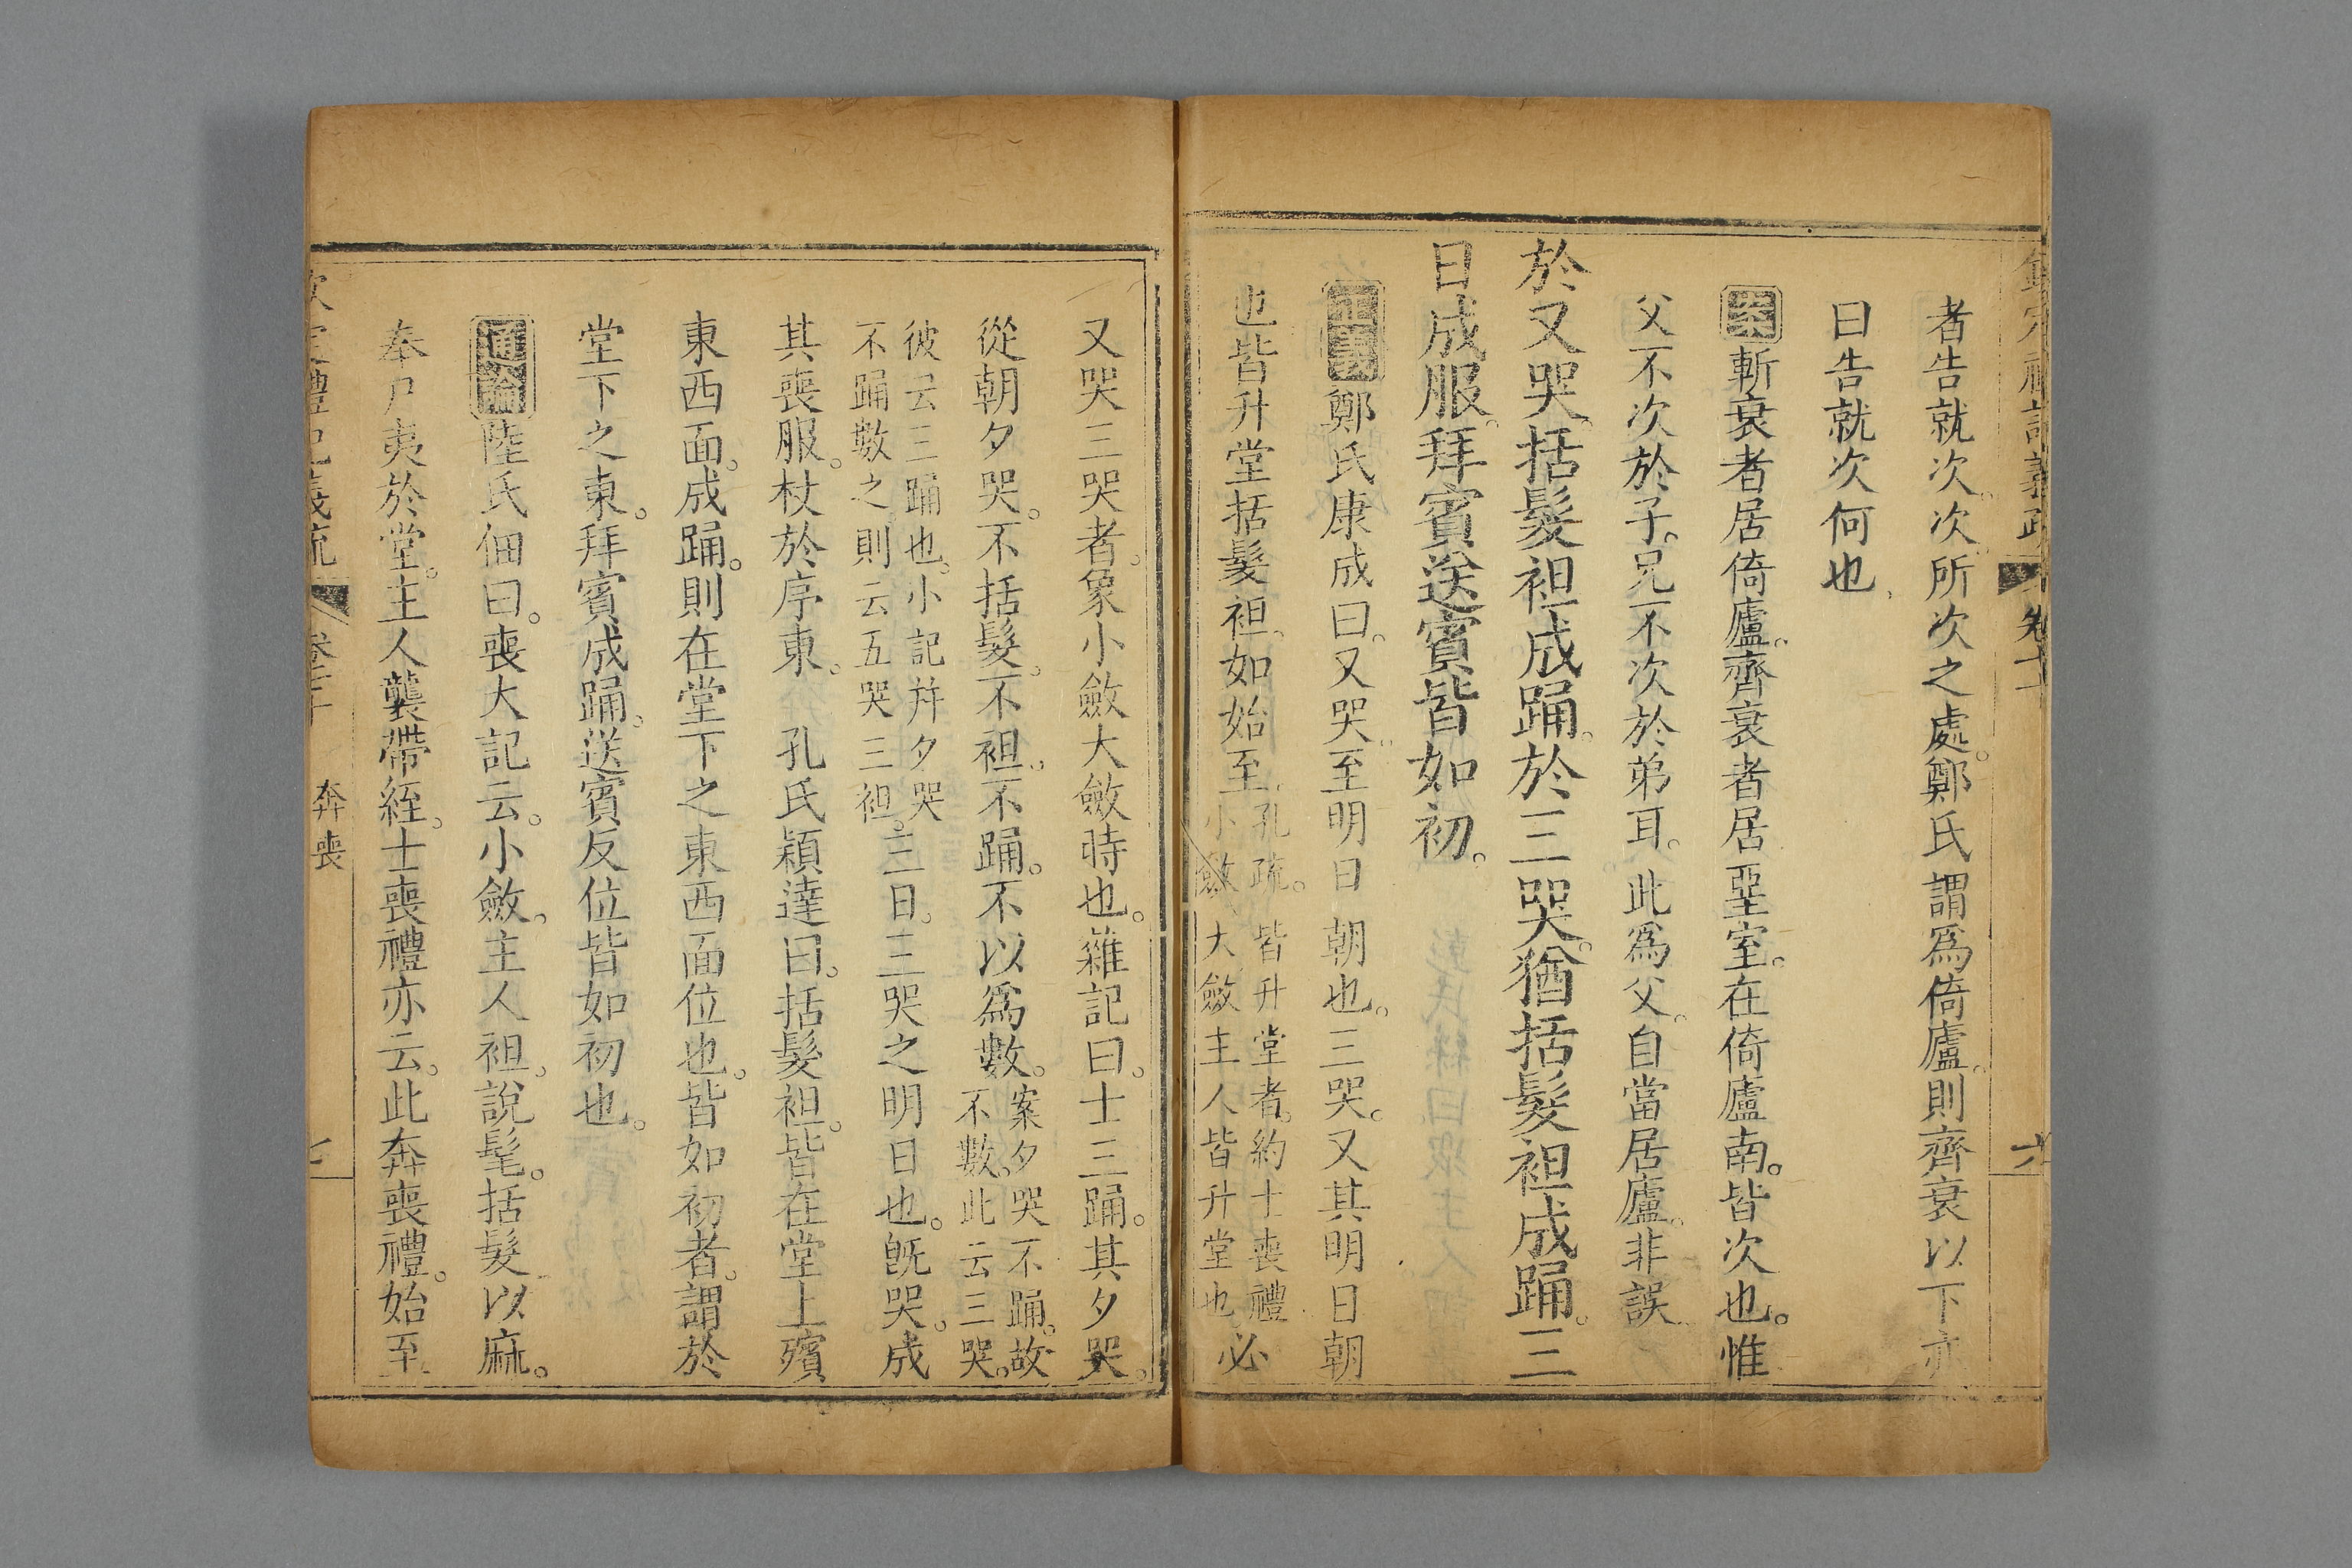 欽定禮記義疏 卷七十 六
者告就次。次所次之處。鄭氏謂爲倚廬。則齊衰以下亦
曰告就次何也
案斬衰者居倚廬。齊衰者居堊室。在倚廬南。皆次也。惟
父不次於子。兄不次於弟耳。此爲父。自當居廬。非誤
於又哭。括髮袒成踊。於三哭。猶括髮袒成踊。三
日成服。拜賓送賓皆如初。
正義鄭氏康成曰。又哭。至明日朝也。三哭。又其明日朝
也。皆升堂括髮袒。如始至。孔疏。皆升堂者。約士喪禮
小斂大斂主人皆升堂也。必
又哭三哭者。象小斂大斂時也。雜記曰。士三踊。其夕哭。
從朝夕哭。不括髮。不袒。不踊。不以爲數。案夕哭不踊。故
不數。此云三哭。
彼云三踊也。小記幷夕哭
不踊數之。則云五哭三袒。三日。三哭之明日也。旣哭。成
其喪服。杖於序東。 孔氏穎達曰。括髮袒。皆在堂上殯
東西面。成踊。則在堂下之東西面位也。皆如初者。謂於
堂下之東。拜賓成踊。送賓反位皆如初也。
通論陸氏佃曰。喪大記云。小斂。主人袒。說髦。括髮以麻。
奉尸夷於堂。主人襲帶絰。士喪禮亦云。此奔喪禮。始至
禮記義疏 奔喪 七